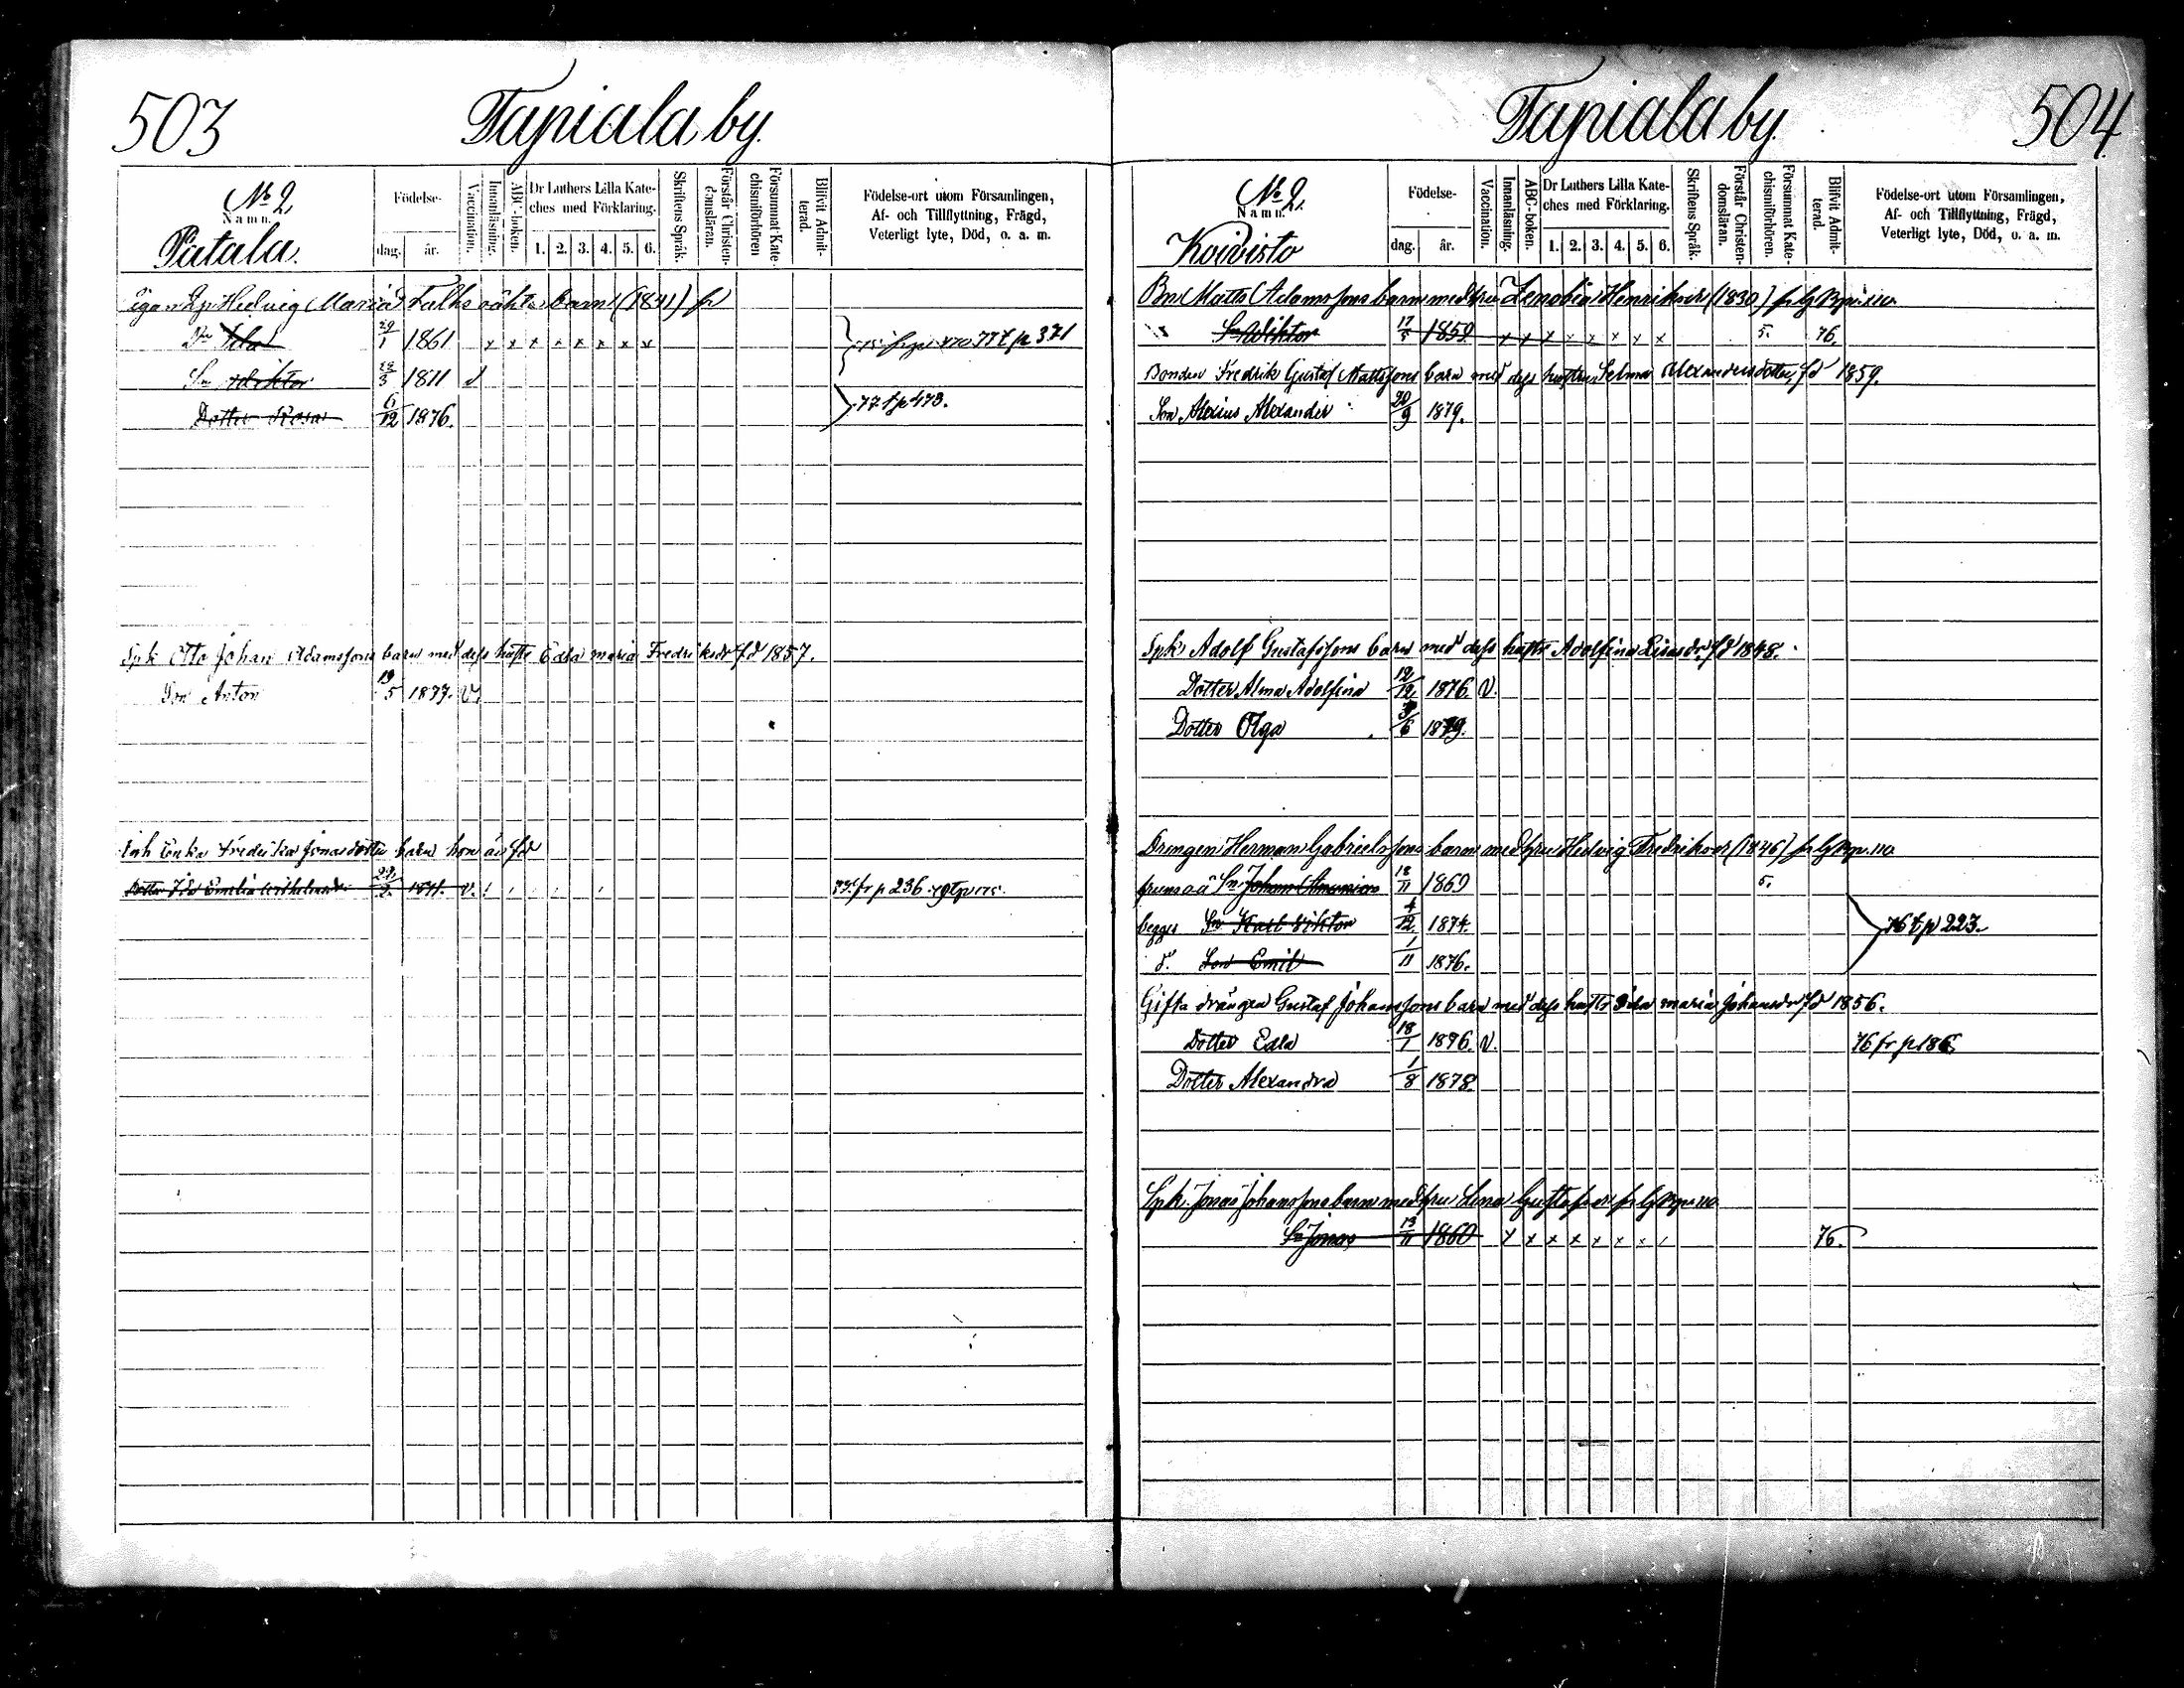 503 Tapiala by.
No 2.
Namn.
Födelse-
dag. år.
Vaccination.
Innanläsning.
ABC-boken.
Dr Luthers Lilla Kate-
ches med Förklaring.
1. 2. 3. 4. 5. 6.
Skriftens Språk.
Förstår Christen-
domsläran.
Försummat Kate-
chismiförhören
Blifvit Admit-
terad.
Födelse-ort utom Församlingen,
Af- och Tillflyttning, Frägd,
Veterligt lyte, Död, o. a. m.
Hedvig Maria Falks oäkta barn (1841)
29/1 1861 x x x x x x x x 77 t p 371
Sn Viktor 23/3 1811
Dotter Rosa 6/12 1876. 77 t p 473.
Spk Otto Johan Adamssons barn med dess hustr Edla Maria Fredriksdr fd 1857.
Son Anton 19/5 1877. V.
Inh Enka Fredrika Jonasdotter barn hon är fd
Dotter Ida Emelia 22/2. 1871. v. fr p 236
504 Tapiala by.
No 2.
Namn.
Koivisto
Födelse-
dag. år.
Vaccination.
Innanläsning.
ABC-boken.
Dr Luthers Lilla Kate-
ches med Förklaring.
1. 2. 3. 4. 5. 6.
Skriftens Språk.
Förstår Christen-
domsläran.
Försummat Kate-
chismiförhören.
Blifvit Admit-
terad.
Födelse-ort utom Församlingen,
Af- och Tillflyttning, Frägd,
Veterligt lyte, Död, o. a. m.
Bn Matts Adamssons barn med hru Zenobia Henriksdr (1830)
Sn Wiktor 17/5 1859 x x x x x x x x 5. 76.
Bonden Fredrik Gustaf Mattssons barn med dess hustru Selma Alexandersdotter, fd 1859.
Son Alexius Alexander 20/9 1879.
Spk Adolf Gustafssons barn med dess hustr Adolfina fd 1848.
Dotter Alma Adolfina 12/12 1876 V.
Dotter Olga 3/6 1879.
Drengen Herman Gabrielssons barn med hru Hedvig Fredriksdr (1846)
Sn Johan 18/11 1869 5.
begges Sn Karl Viktor 4/12 1874.
d. Son Emil 1/11 1876. 76 t p 223.
Gifta drängen Gustaf Johanssons barn med dess hustr Maria Johansdr fd 1856.
Dotter Edla 18/1 1876. V. 76 fr p 186.
Dotter Alexandra 1/8 1878.
Spk. Jonas Johanssons barn med hru Lena Gustafsdr
Sn Jonas 13/11 1860 x x x x x x x 76.